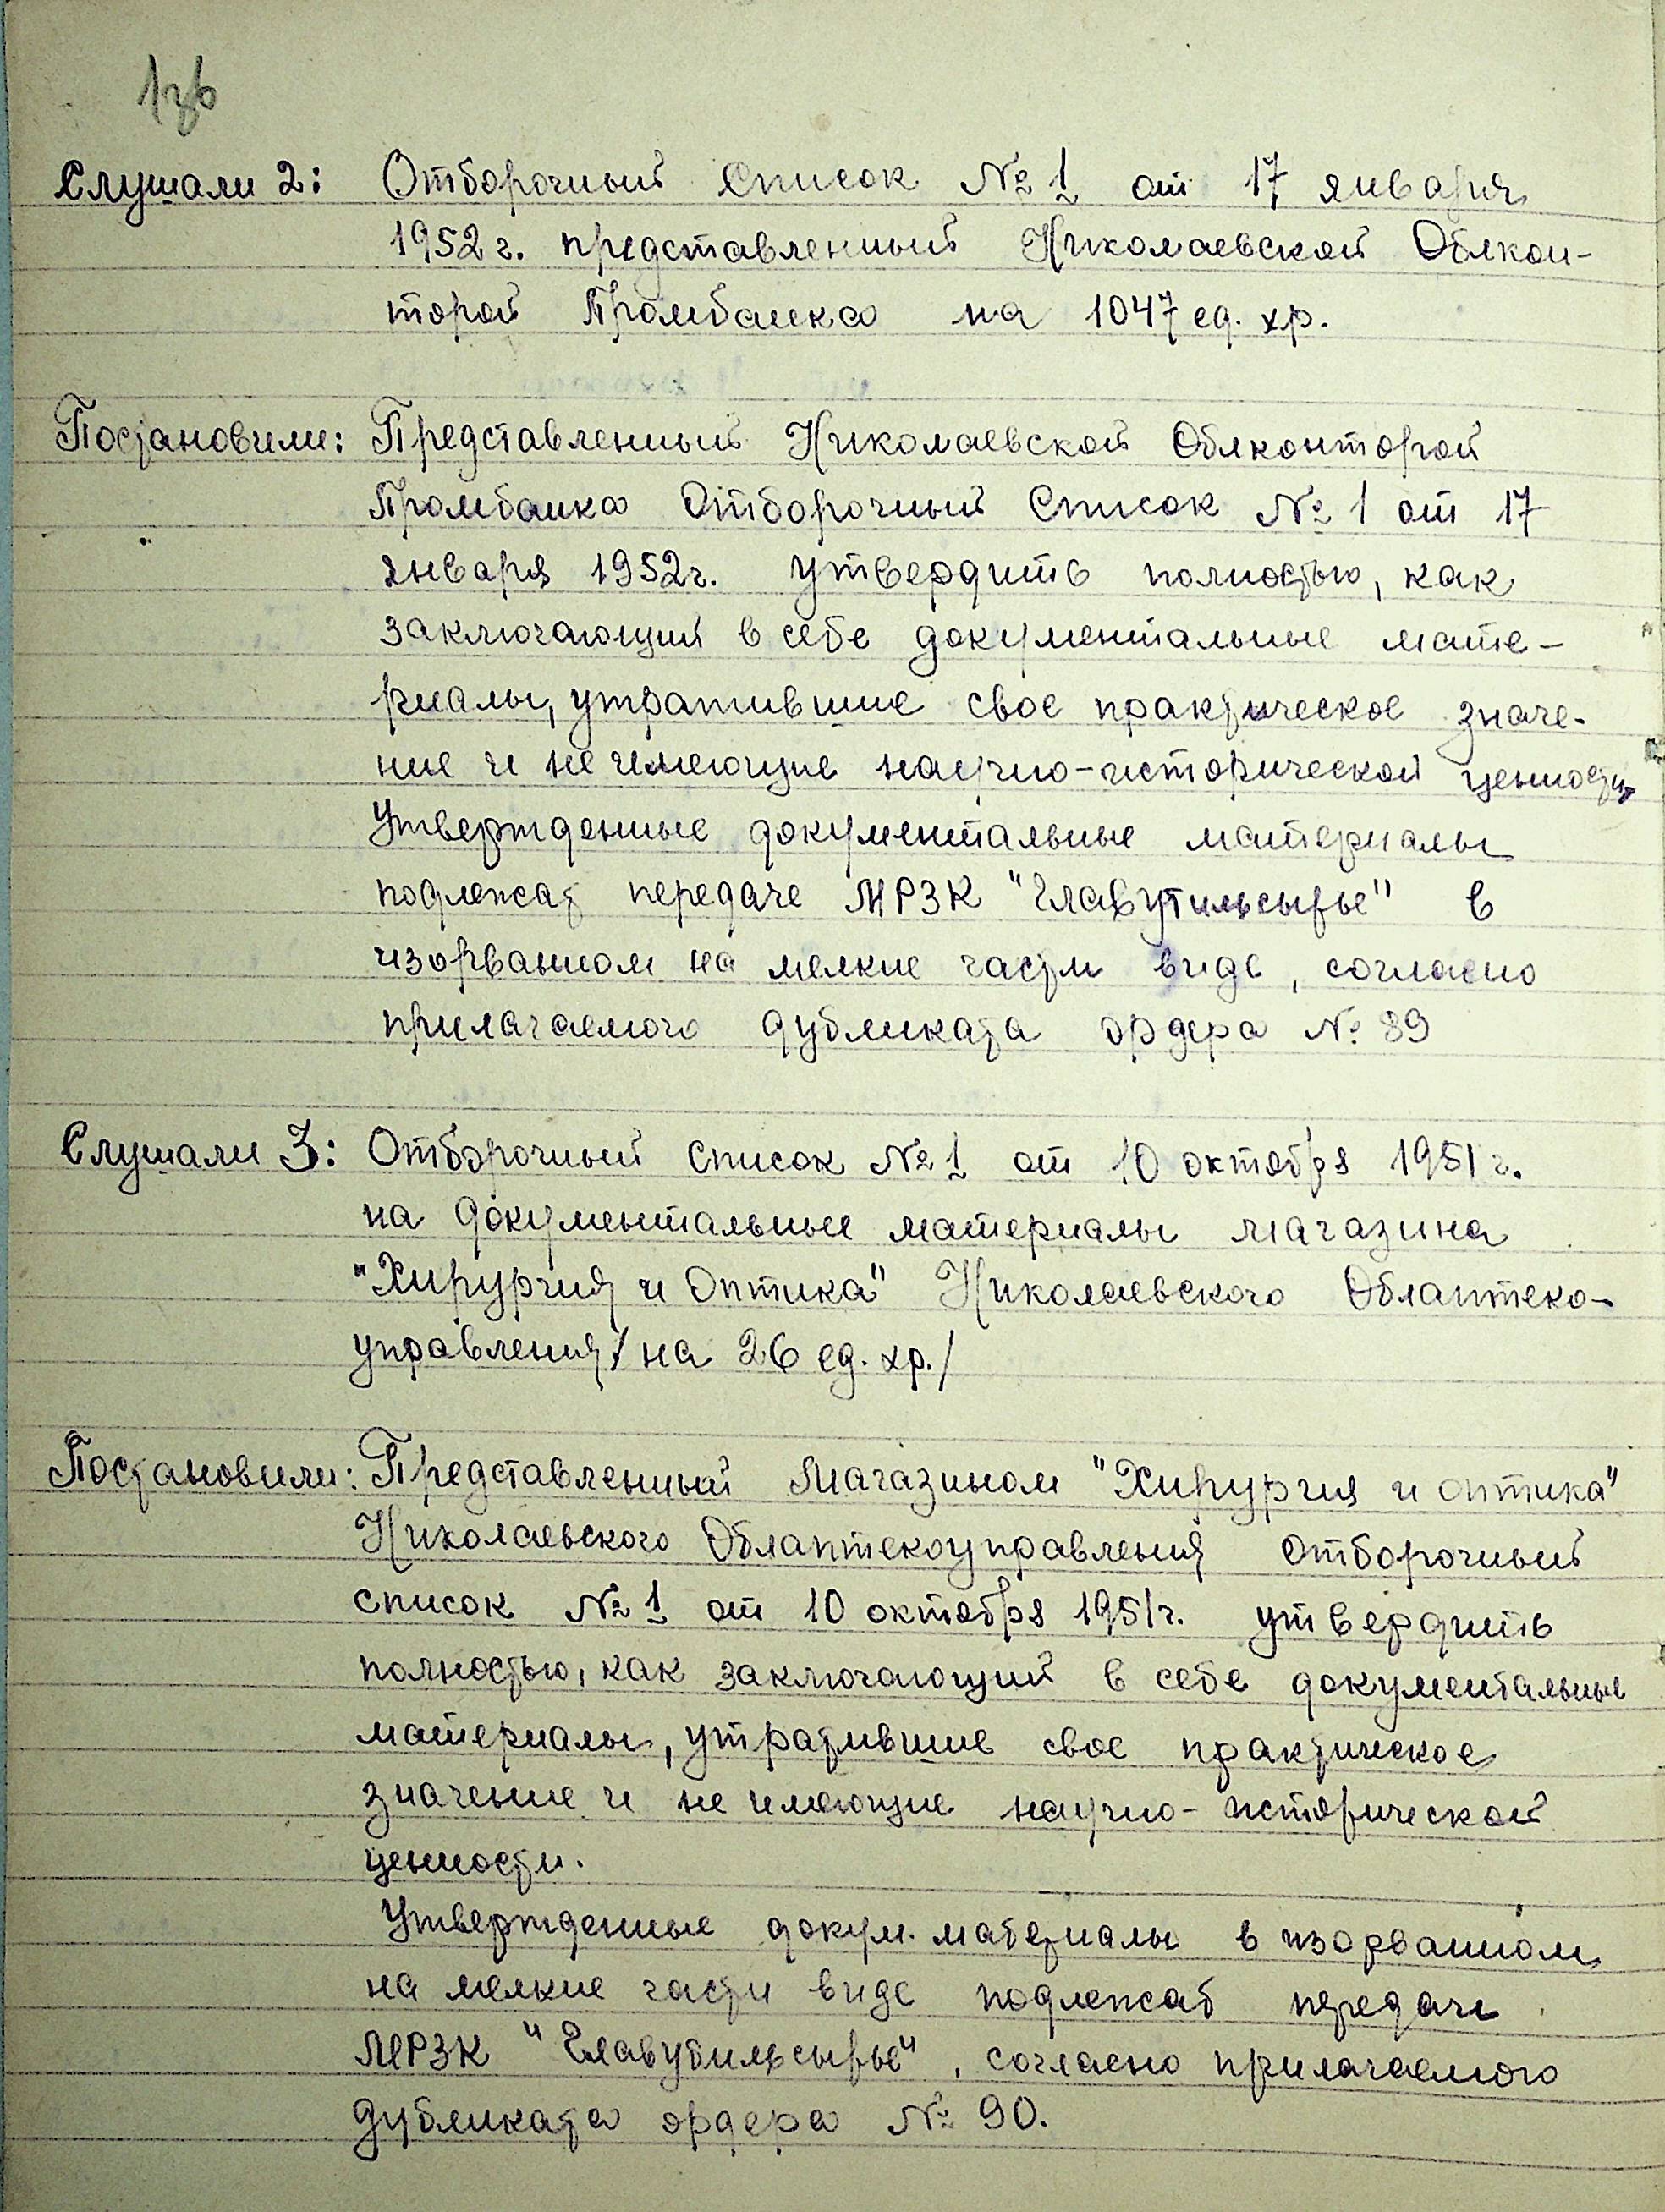 Слушали 2: Отборочный Список № 1 от 17 января
1952 г. представленный Николаевской Облкон-
торой Промбанка на 1047 ед. хр.
Постановили: Представленный Николаевской Облконторой
Промбанка Отборочный Список № 1 от 17
января 1952 г. утвердить полностью, как
заключающий в себе документальные мате-
риалы, утратившие свое практическое значе-
ние и не имеющие научно-исторической ценности,
Утвержденные документальные материалы
подлежат передаче МРЗК "Главутильсырье" в
изорванном на мелкие части виде, согласно
прилагаемого дубликата ордера № 89
Слушали 3: Отборочный Список № 1 от 10 октября 1951 г.
на документальные материалы магазина
"Хирургия и Оптика" Николаевского Облаптеко-
управления /на 26 ед. хр./
Постановили: Представленный Магазином "Хирургия и оптика"
Николаевского Облаптекоуправления отборочный
список № 1 от 10 октября 1951 г. утвердить
полностью, как заключающий в себе документальные
материалы, утратившие свое практическое
значение и не имеющие научно-исторической
ценности.
Утвержденные докум. материалы в изорванном
на мелкие части виде подлежат передаче
МРЗК "Главутильсырье", согласно прилагаемого
дубликата ордера № 90.